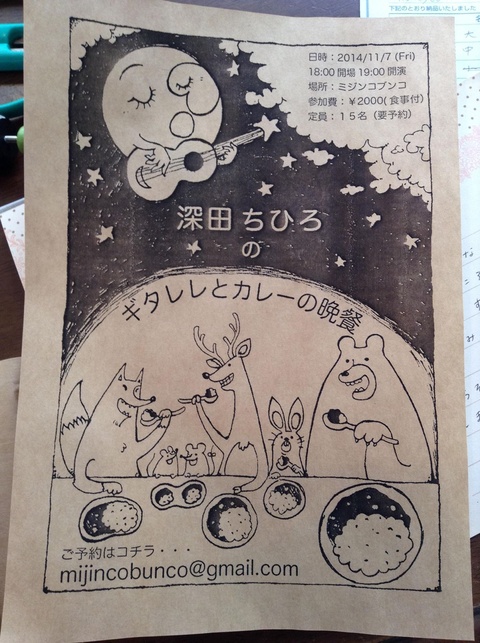 下記のとおり納品いたしました
日時：2014/11/7 (Fri)
18:00 開場 19:00 開演
場所：ミジンコブンコ
参加費：￥2000( 食事付)
定員：１５名（要予約）
深田 ちひろ
の
ギタレレとカレーの晩餐
ご予約はコチラ・・・
mijincobunco@gmail.com